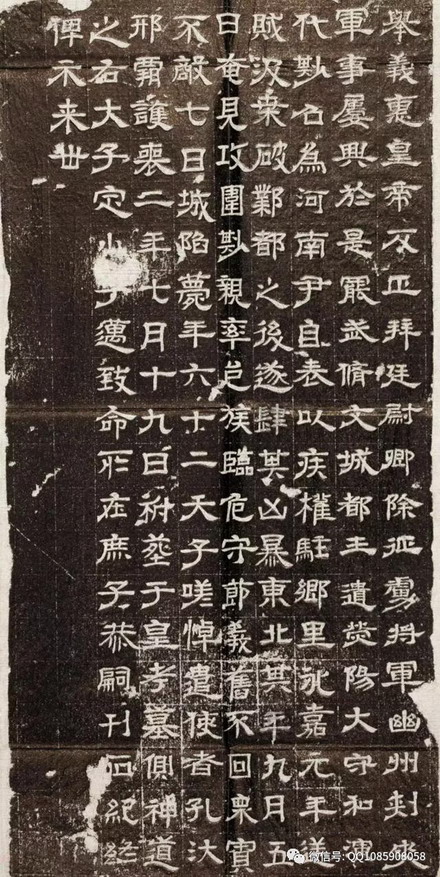 舉義惠皇帝反正拜廷尉卿除征虜將軍幽州刺史
軍事屢興於是罷武脩文城都王遣滎陽大守和演
代尠召為河南尹自表以疾權駐鄉里永嘉元年逆
賊汲桒破鄴都之後遂肆其凶暴東北其年九月五
日奄見攻圍尠親率邑族臨危守節義舊不回衆寡
不敵七日城陷薨年六十二天子嗟悼遣使者孔汰
邢霸護喪二年七月十九日祔葬于皇考墓側神道
之右大子定小子邁致命所在庶子恭嗣刊石紀終
俾示来世
微信号: QQ1085908058